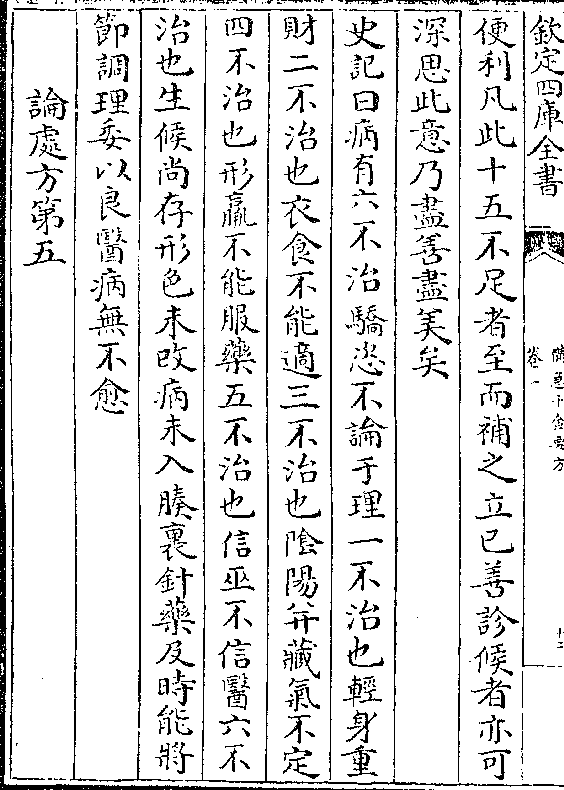 欽定四庫全書
備急千金要方
卷一
十二
便利凡此十五不足者至而補之立已善診候者亦可
深思此意乃盡善盡美矣
史記曰病有六不治驕恣不論于理一不治也輕身重
財二不治也衣食不能適三不治也陰陽并藏氣不定
四不治也形羸不能服藥五不治也信巫不信醫六不
治也生候尚存形色未改病未入腠裏針藥及時能將
節調理委以良醫病無不愈
論處方第五